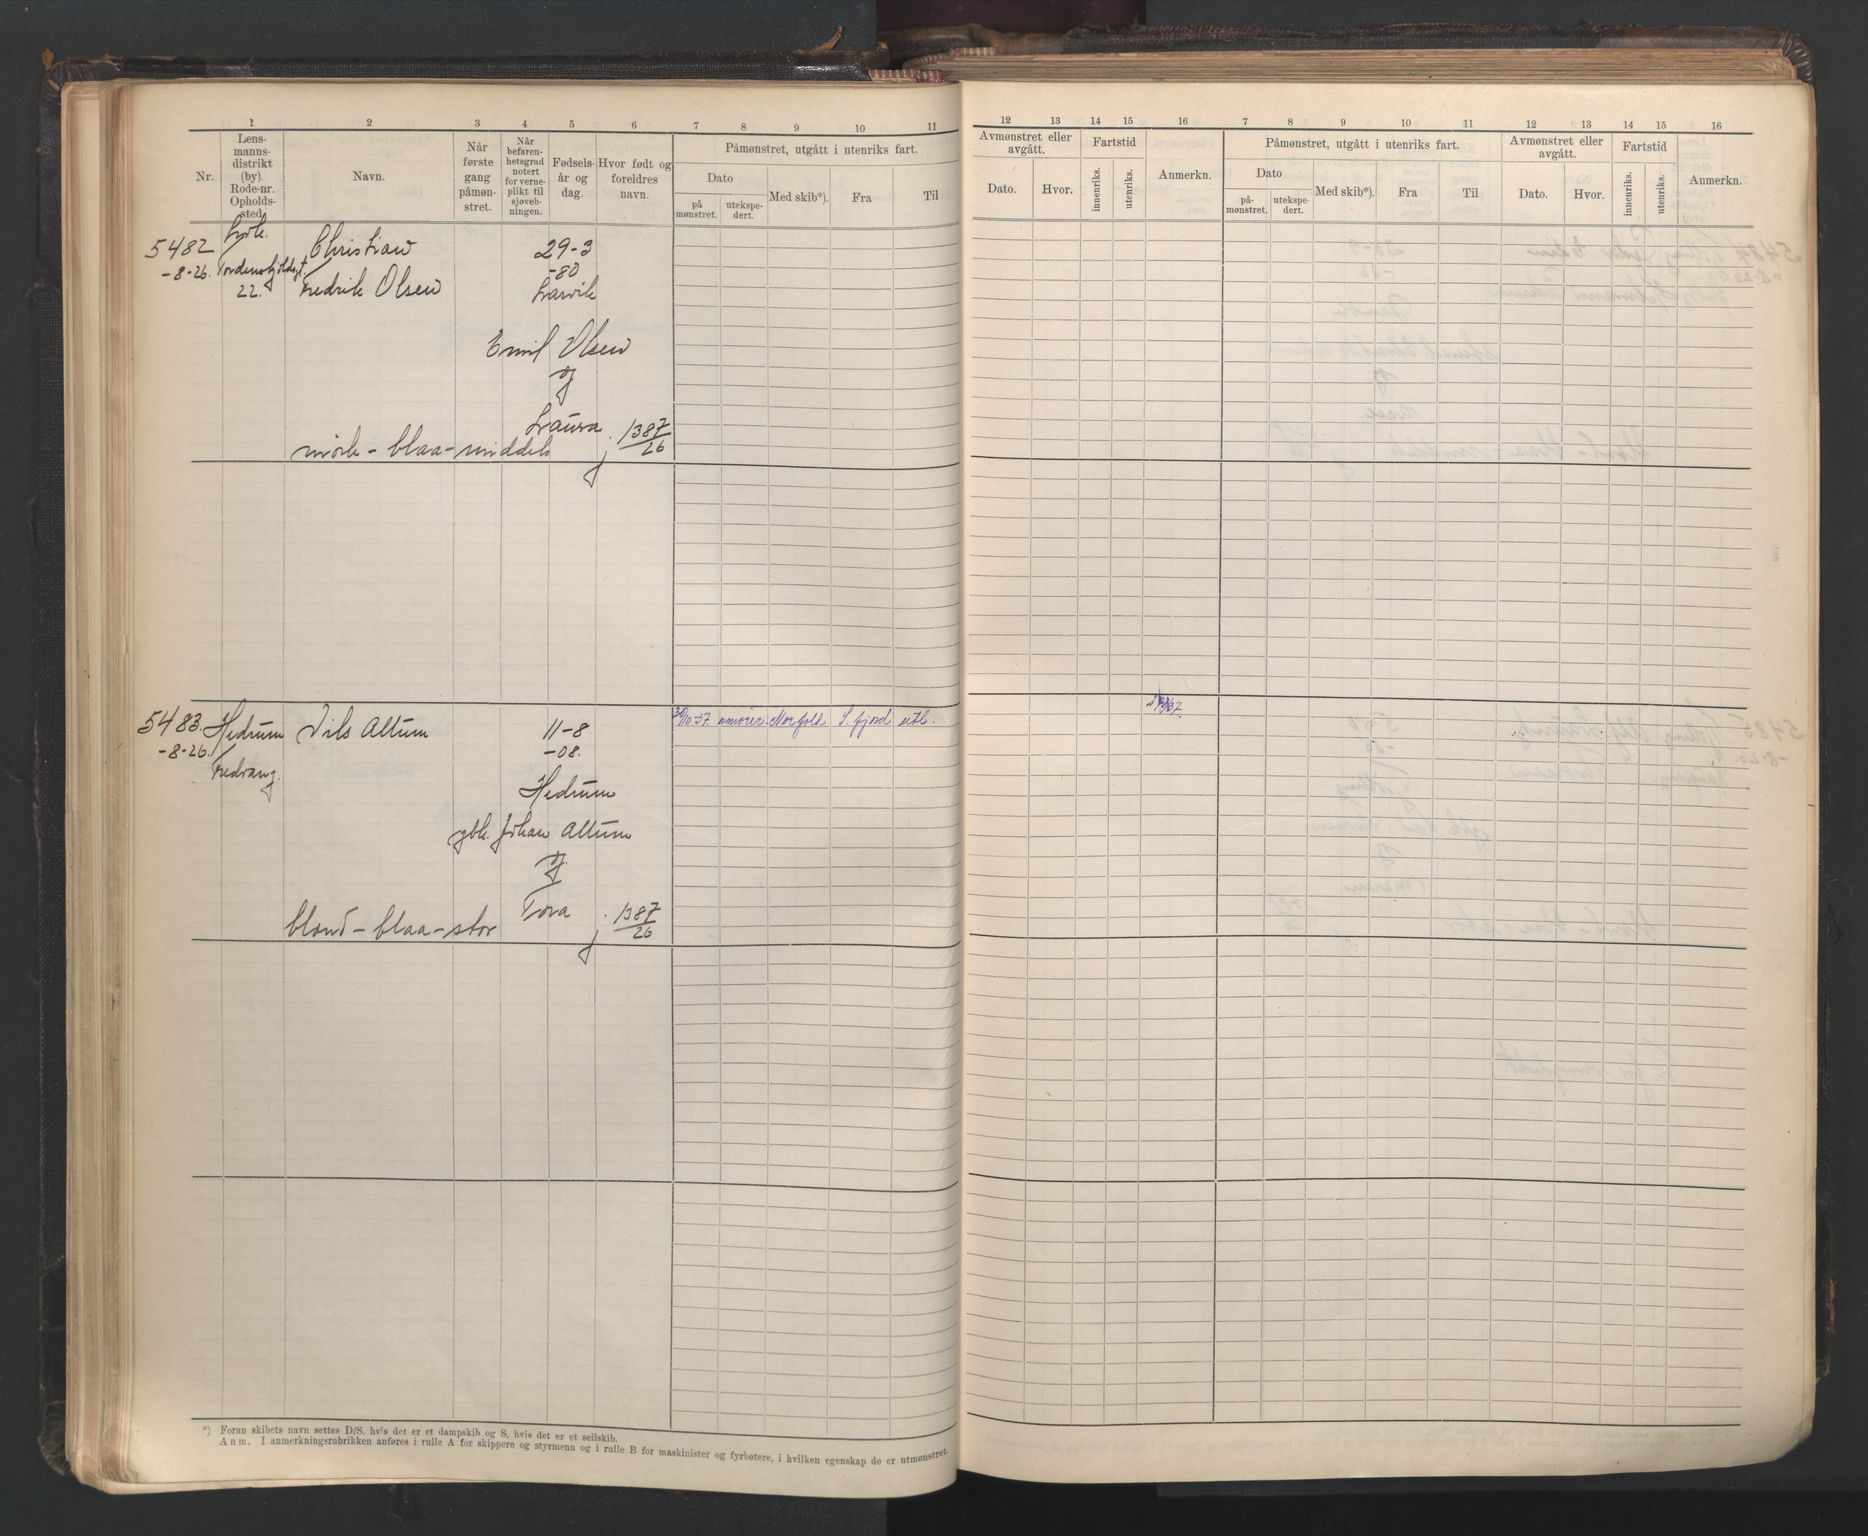 1 2 3 4 5 6 7 8 9 10 11
Nr.
Lens-
manns-
distrikt
(by).
Rode-nr.
Opholds-
sted.
Navn.
Når
første
gang
påmøn-
stret.
Når
befaren-
hetsgrad
notert
for verne-
plikt til
sjøveb-
ningen.
Fødsels-
år og
dag.
Hvor født og
foreldres
navn.
Påmønstret, utgått i utenriks fart.
Dato
på
mønstret.
utekspe-
dert.
Med skib*).
Fra
Til
5482
-8-26.
Tordenskjoldsgt.
22.
Christian
Fredrik Olsen
29-3
-80
Larvik
Emil Olsen
og
Laura
mörk - blaa - middels
j. 1387/26
5483.
-8-26.
Hedrum
Nils Allum
11-8
-08.
Hedrum
gbr. Johan Allum
og
Tora
blond - blaa - stor
j. 1387/26
Norfold S.fjord utl.
*) Foran skibets navn settes D/S. hvis det er et dampskib og S, hvis det er et seilskib.
Anm. I anmerkningsrubrikken anføres i rulle A for skippere og styrmenn og i rulle B for maskinister og fyrbøtere, i hvilken egenskap de er utmønstret.
12 13 14 15 16 7 8 9 10 11 12 13 14 15 16
Avmønstret eller
avgått.
Dato.
Hvor.
Fartstid
innenriks.
utenriks.
Anmerkn.
Påmønstret, utgått i utenriks fart.
Dato
på-
mønstret.
utekspe-
dert.
Med skib*).
Fra
Til
Avmønstret eller
avgått.
Dato.
Hvor.
Fartstid
innenriks.
utenriks.
Anmerkn.